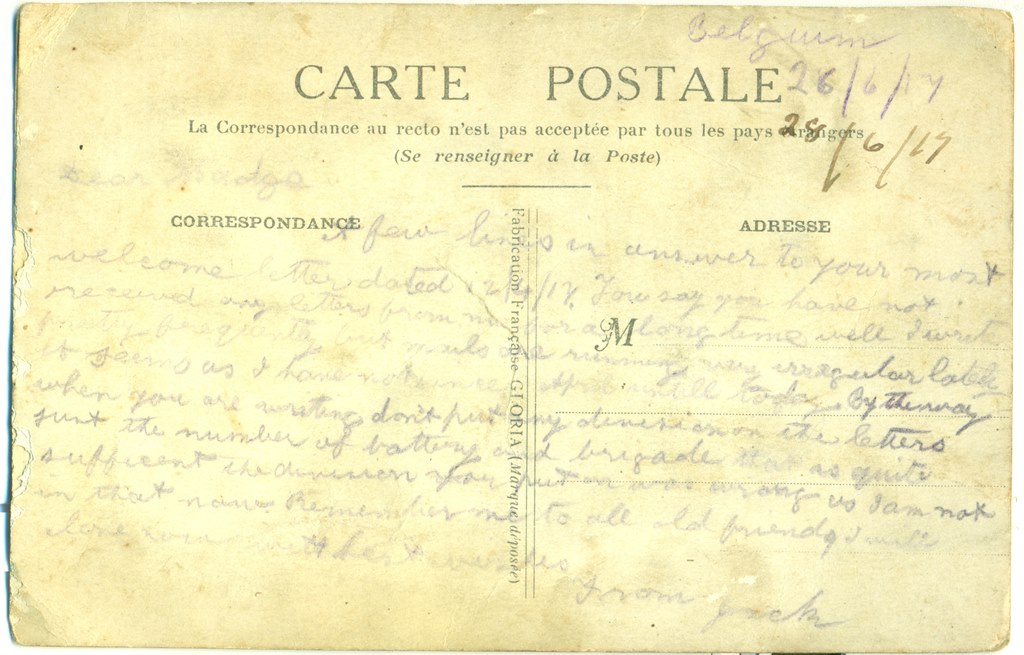 Belgium
26/6/17
CARTE POSTALE
28/6/17
La Correspondance au recto n'est pas acceptée par tous les pays étrangers
(Se renseigner à la Poste)
Dear Madge
CORRESPONDANCE
ADRESSE
A few lines in answer to your most
welcome letter dated 12/4/17. You say you have not
received any letters from me for a long time well I write
pretty frequently but mails are running very irregular lately
it seems as I have not since April untill today. By the way
when you are writing dont put my division on the letters
just the number of battery and brigade that as quite
sufficent the division you put on was wrong as I am not
in that now Remember me to all old friends I will
close now with best wishes
From Jack
M
Fabrication Française GLORIA (Marque déposée)